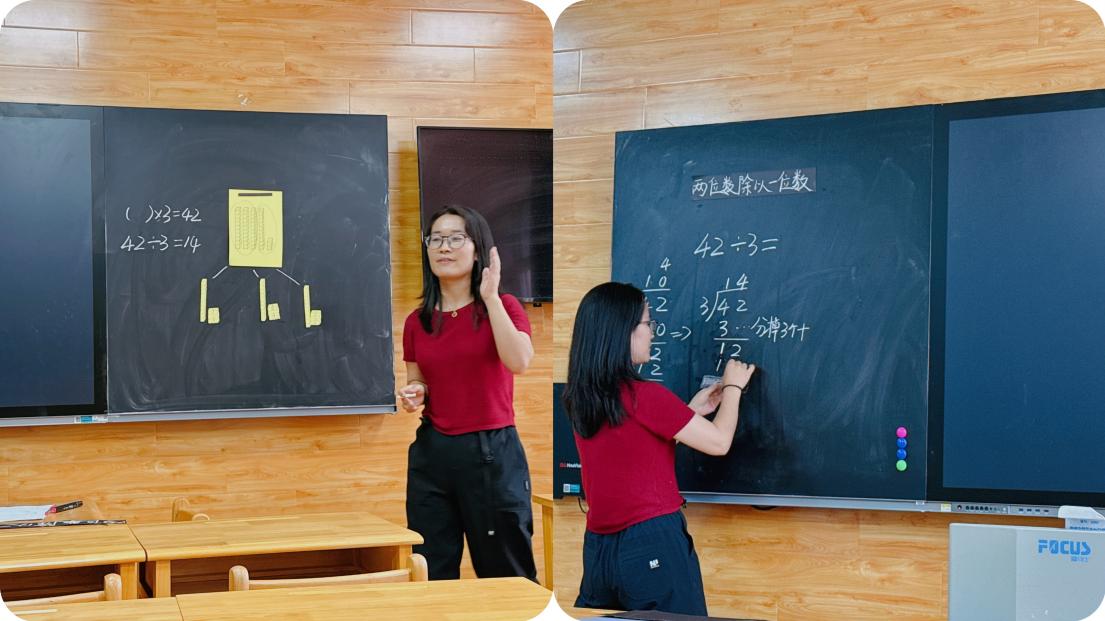 ( )×3=42
42÷3=14
两位数除以一位数
42÷3=
4
10
42
0 =>
2
12
14
3)42
3 … 分掉3个十
12
1
FOCUS